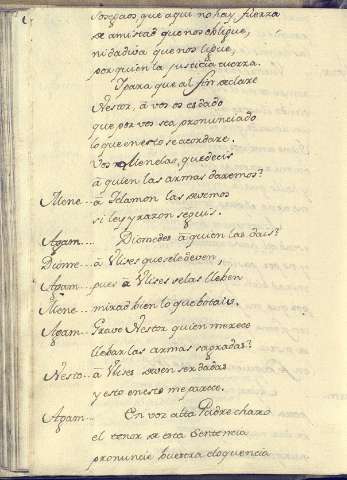 Jueçes que aqui no hay fuerza
de amistad que nos obligue,
ni dadiva que nos ligue,
por quien la justicia tuerza.
Y para que al fin se clare
Nestor, à vos es dado
que por vos sea pronunciado
lo que en esto se acordare.
Vos Menelao, que decis
à quien las armas daremos?
Mene.. à Telamon las demos
si ley y razon seguis.
Agam... Diomedes à quien las dais?
Diome.. à Ulises que se le deven,
Agam.. pues à Ulises se las lleben
Mene... mirad bien lo que botais.
Agam.. Grave Nestor quien merece
llebar las armas sagradas?
Nesto.. à Ulises deven ser dadas
y esto en esto me parece.
Agam... En voz alta Padre charo
el tenor de esta Sentencia
pronuncie buestra eloquencia